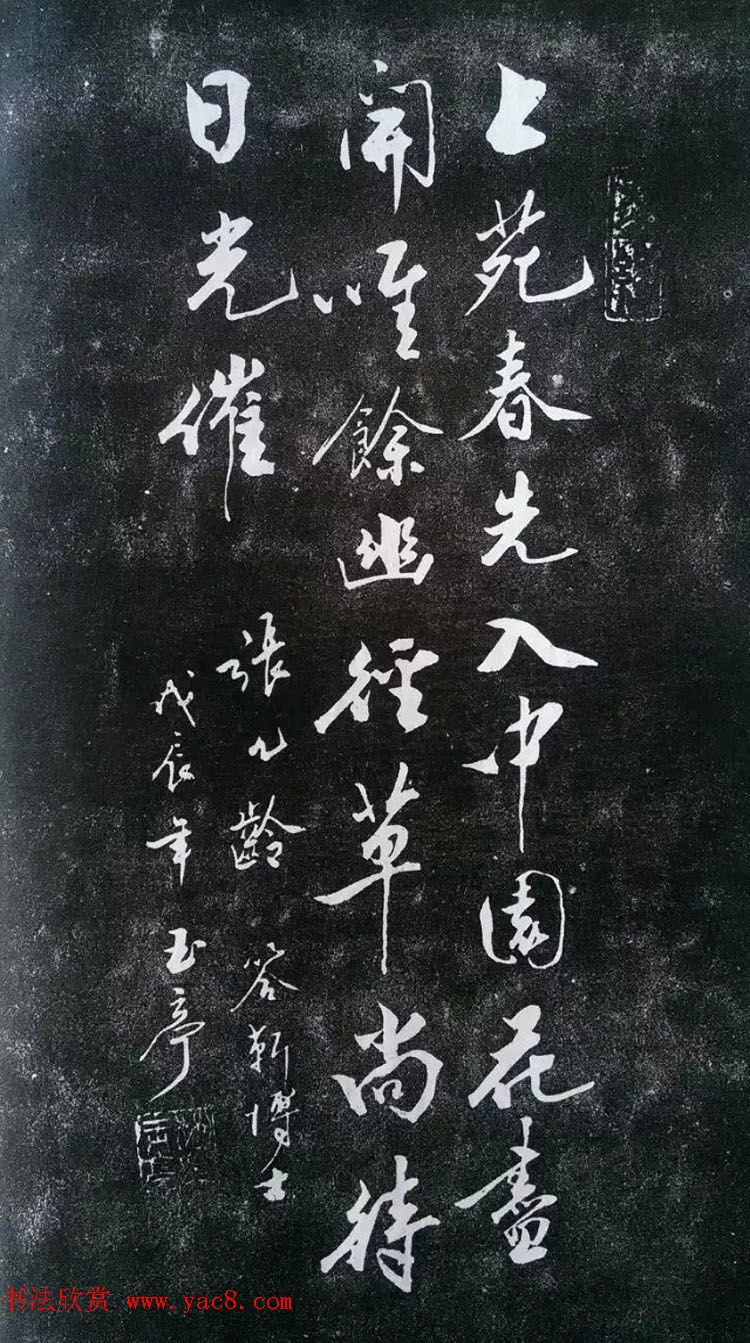 上苑春先入中園花盡
開唯餘幽徑草尚待
日光催
張九齡 答靳博士
戊辰年 玉亭
书法欣赏 www.yac8.com